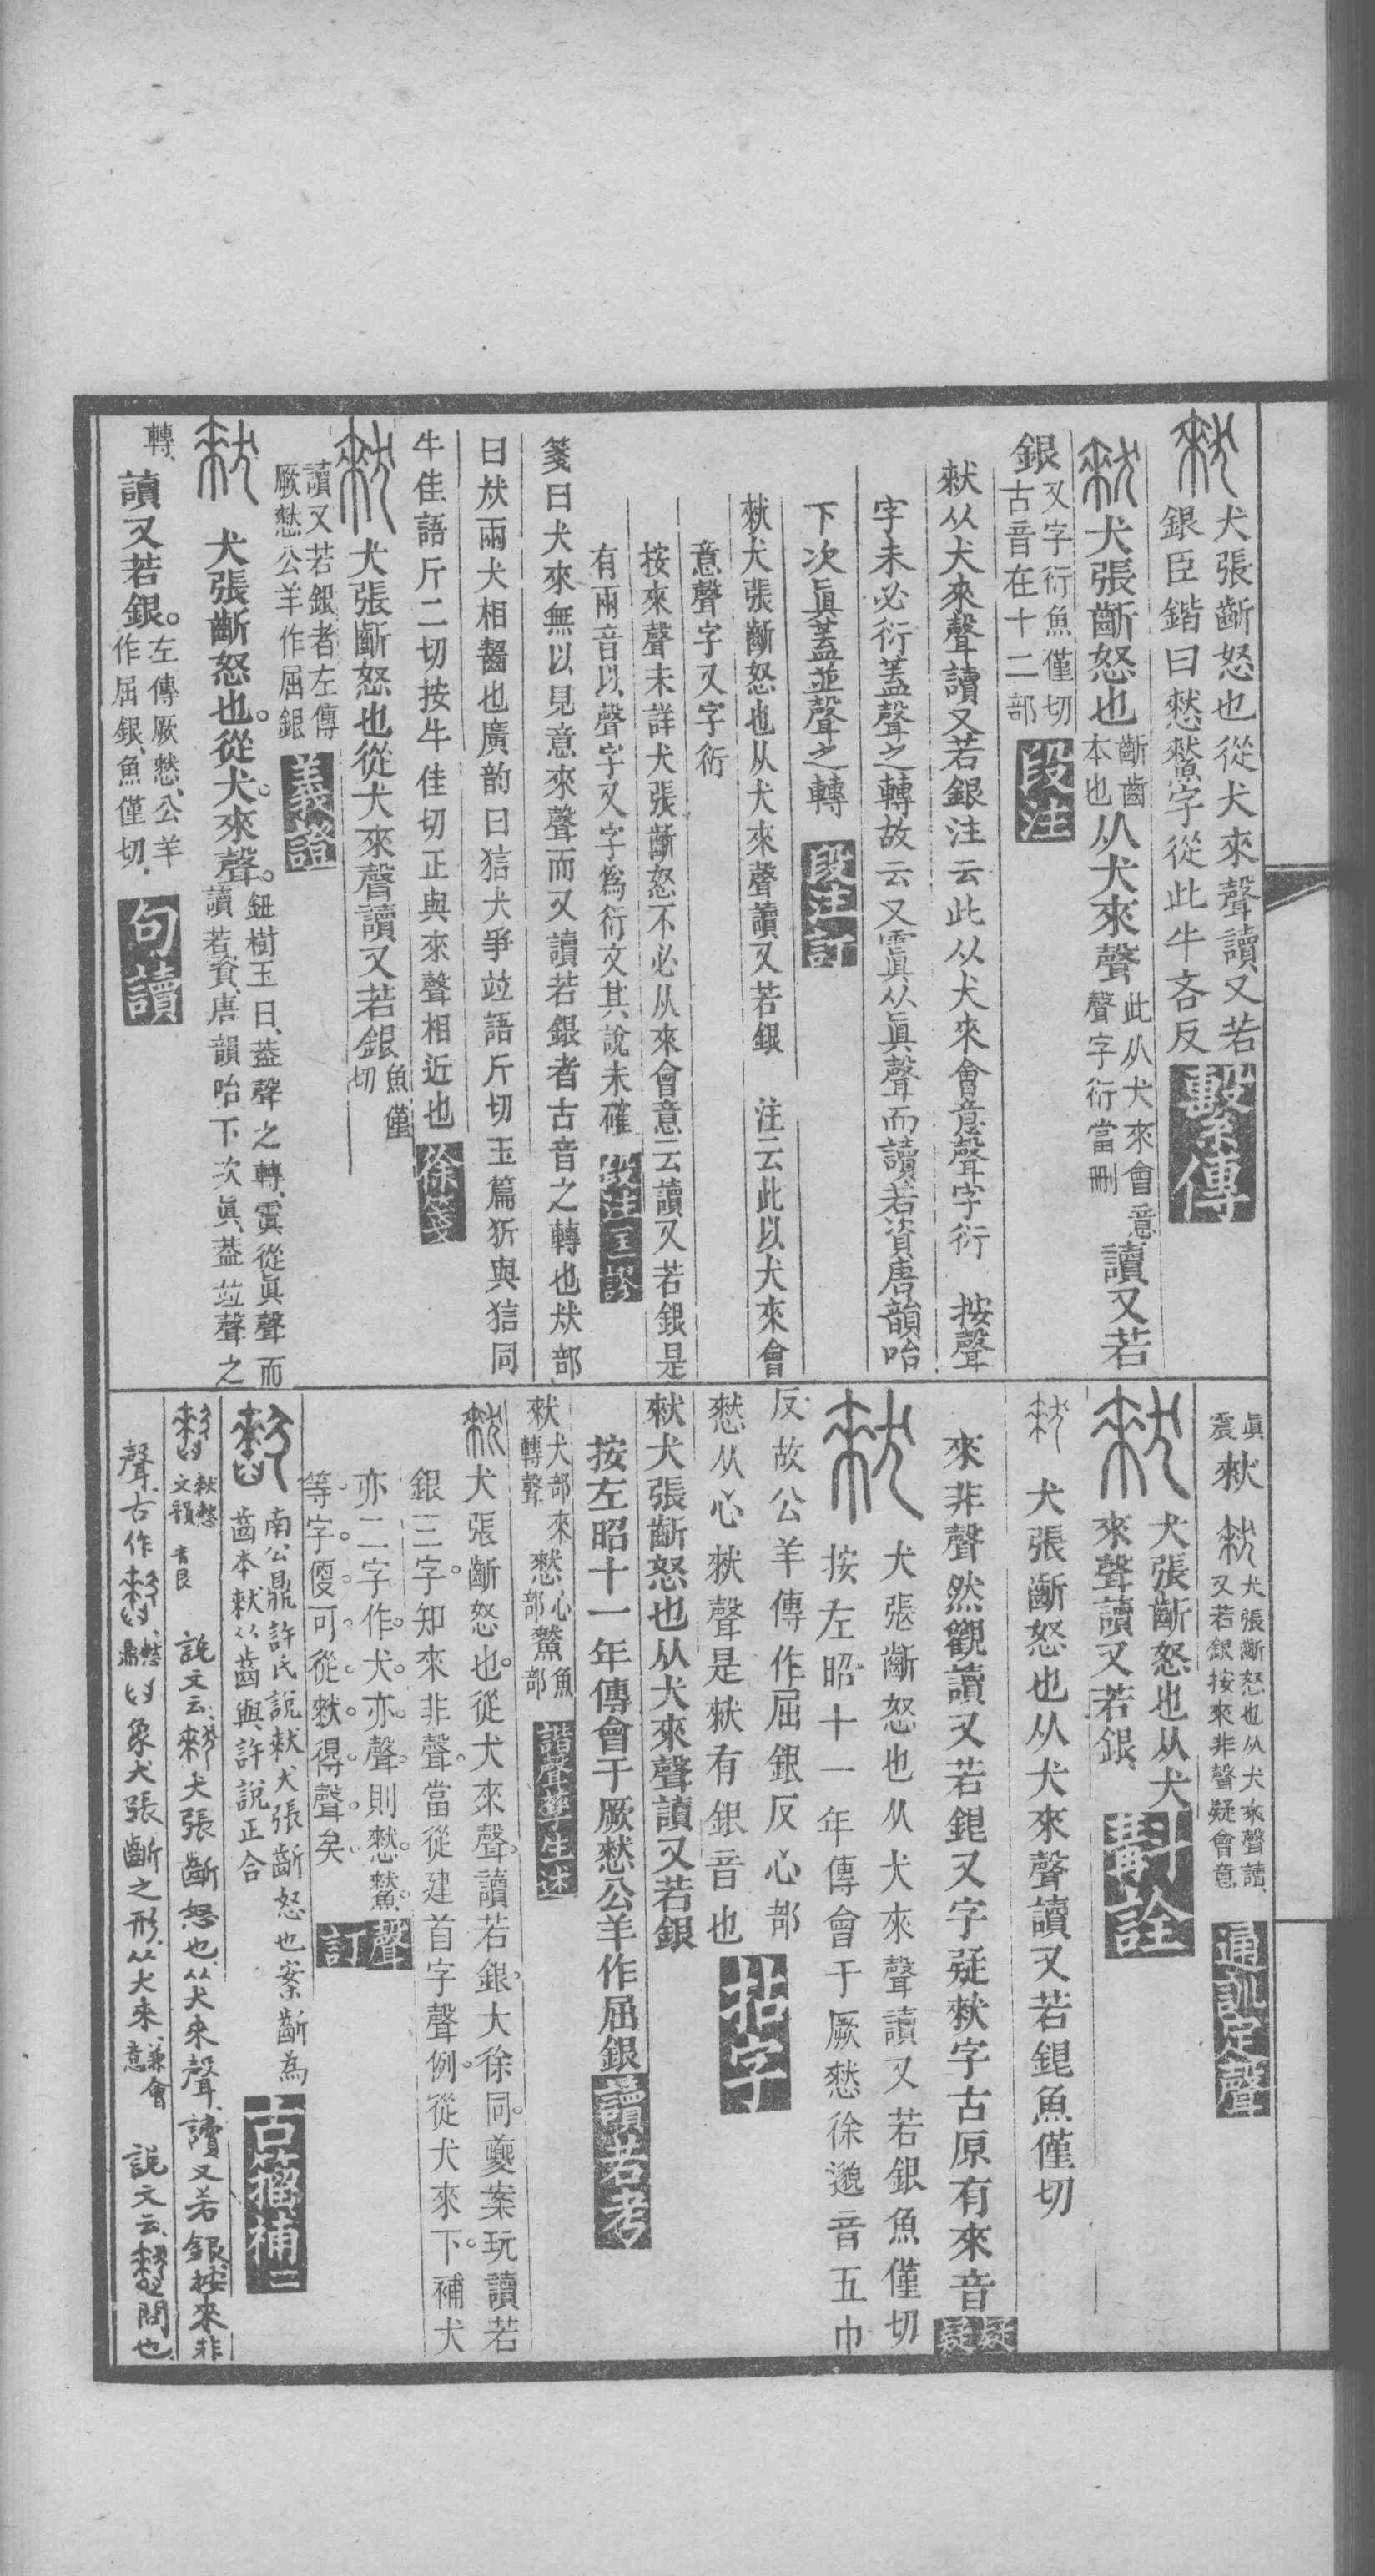 犬張齗怒也從犬來聲讀又若
銀臣鍇曰憖䲔字從此牛吝反
繫傳
犬張齗怒也
齗齒
本也
从犬來聲
此从犬來會意
聲字衍當刪
讀又若
銀
又字衍魚僅切
古音在十二部
段注
猌从犬來聲讀又若銀注云此从犬來會意聲字衍 按聲
字未必衍蓋聲之轉故云又䨲从眞聲而讀若資唐韻咍
下次眞蓋並聲之轉
段注訂
猌犬張齗怒也从犬來聲讀又若銀 注云此以犬來會
意聲字又字衍
按來聲未詳犬張齗怒不必从來會意云讀又若銀是
有兩音以聲字又字爲衍文其說未確
段注匡謬
箋曰犬來無以見意來聲而又讀若銀者古音之轉也㹜部
曰㹜兩犬相齧也廣韵曰狺犬爭竝語斤切玉篇犾與狺同
牛佳語斤二切按牛佳切正與來聲相近也
徐箋
犬張齗怒也從犬來聲讀又若銀
魚僅
切
讀又若銀者左傳
厥憖公羊作屈銀
義證
犬張齗怒也。從犬。來聲。
鈕樹玉曰、蓋聲之轉、䨲從眞聲而
讀若資、唐韻咍下次眞、蓋竝聲之
轉、
讀又若銀。
左傳厥憖、公羊
作屈銀、魚僅切、
句讀
眞
震
猌
犬張齗怒也从犬來聲讀
又若銀按來非聲疑會意
通訓定聲
犬張齗怒也从犬
來聲讀又若銀
斠詮
犬張齗怒也从犬來聲讀又若銀魚僅切
來非聲然觀讀又若銀又字疑猌字古原有來音
疑疑
犬張齗怒也从犬來聲讀又若銀魚僅切
按左昭十一年傳會于厥憖徐邈音五巾
反故公羊傳作屈銀反心部
憖从心猌聲是猌有銀音也
拈字
猌犬張齗怒也从犬來聲讀又若銀
按左昭十一年傳會于厥憖公羊作屈銀
讀若考
猌
犬部來
轉聲
憖
心
部
䲔
魚
部
諧聲孳生述
犬張齗怒也。從犬來聲。讀若銀。大徐同。夔案玩讀若
銀三字。知來非聲。當從建首字聲例。從犬來下。補犬
亦二字作。犬。亦。聲。則憖。䲔。
等。字。便。可。從。猌。得。聲。矣。
聲訂
南公鼎許氏說猌犬張齗怒也案齗為
齒本猌从齒與許說正合
古籀補二
猌憖
文韻
說文云、猌犬張齗怒也、从犬來聲、讀又若銀、按來非
聲、古作
象犬張齗之形、从犬來、
兼會
意
說文云、憖問也